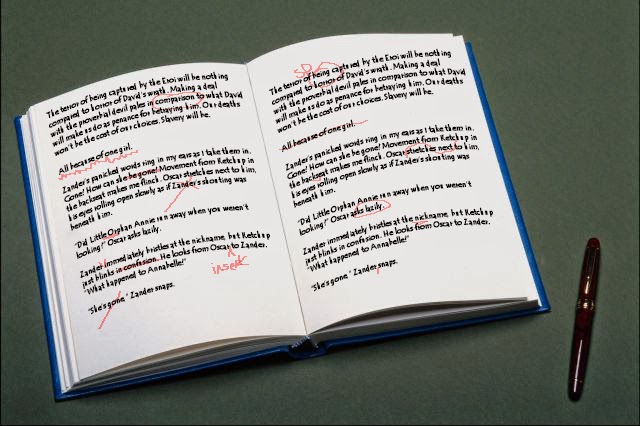 The terror of being captured by the Exoi will be nothing
compared to horror of David's wrath. Making a deal
with the proverbial devil pales in comparison to what David
will make us do as penance for betraying him. Our deaths
won't be the cost of our choices. Slavery will be.
All because of one girl.
Zander's panicked words ring in my ears as I take them in.
Gone? How can she be gone? Movement from Ketchup in
the backseat makes me flinch. Oscar stretches next to him,
his eyes rolling open slowly as if Zander's shouting was
beneath him.
"Did Little Orphan Annie run away when you weren't
looking?" Oscar asks lazily.
Zander immediately bristles at the nickname, but Ketchup
just blinks in confusion. He looks from Oscar to Zander.
"What happened to Annabelle?"
insert
"She's gone," Zander snaps.
The terror of being captured by the Exoi will be nothing
compared to horror of David's wrath. Making a deal
with the proverbial devil pales in comparison to what David
will make us do as penance for betraying him. Our deaths
won't be the cost of our choices. Slavery will be.
All because of one girl.
Zander's panicked words ring in my ears as I take them in.
Gone? How can she be gone? Movement from Ketchup in
the backseat makes me flinch. Oscar stretches next to him,
his eyes rolling open slowly as if Zander's shouting was
beneath him.
"Did Little Orphan Annie run away when you weren't
looking?" Oscar asks lazily.
Zander immediately bristles at the nickname, but Ketchup
just blinks in confusion. He looks from Oscar to Zander.
"What happened to Annabelle?"
"She's gone," Zander snaps.